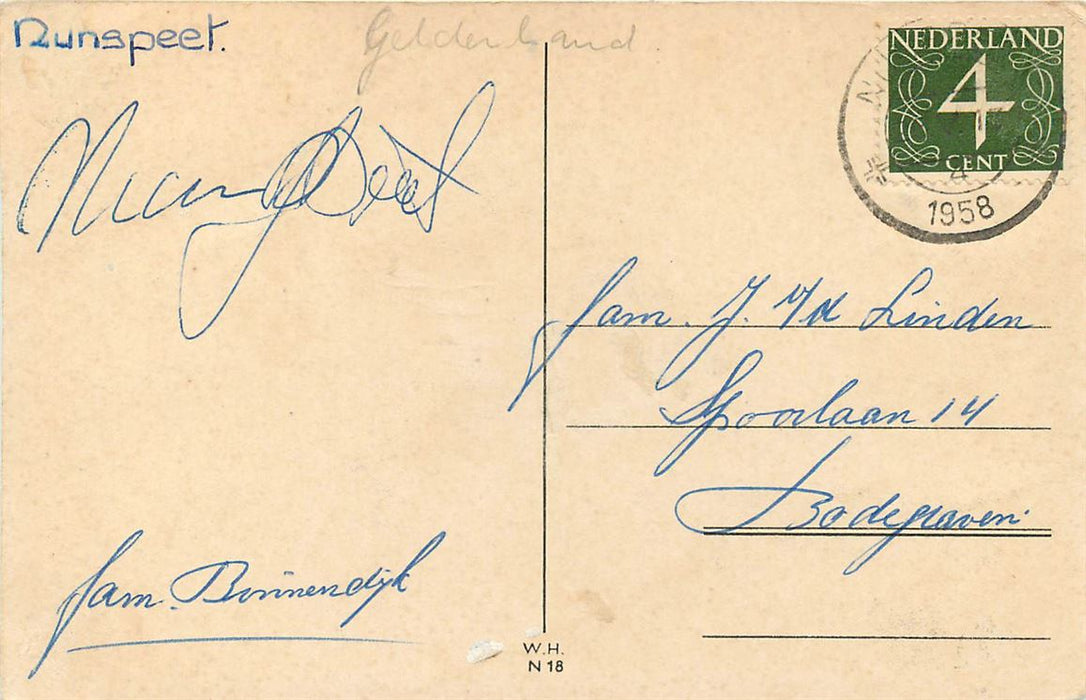 Nunspeet.
Gelderland
NEDERLAND
4
CENT
4
1958
Fam. J. v/d Linden
Spoorlaan 14
Bodegraven.
Fam. Binnendijk
W.H.
N 18